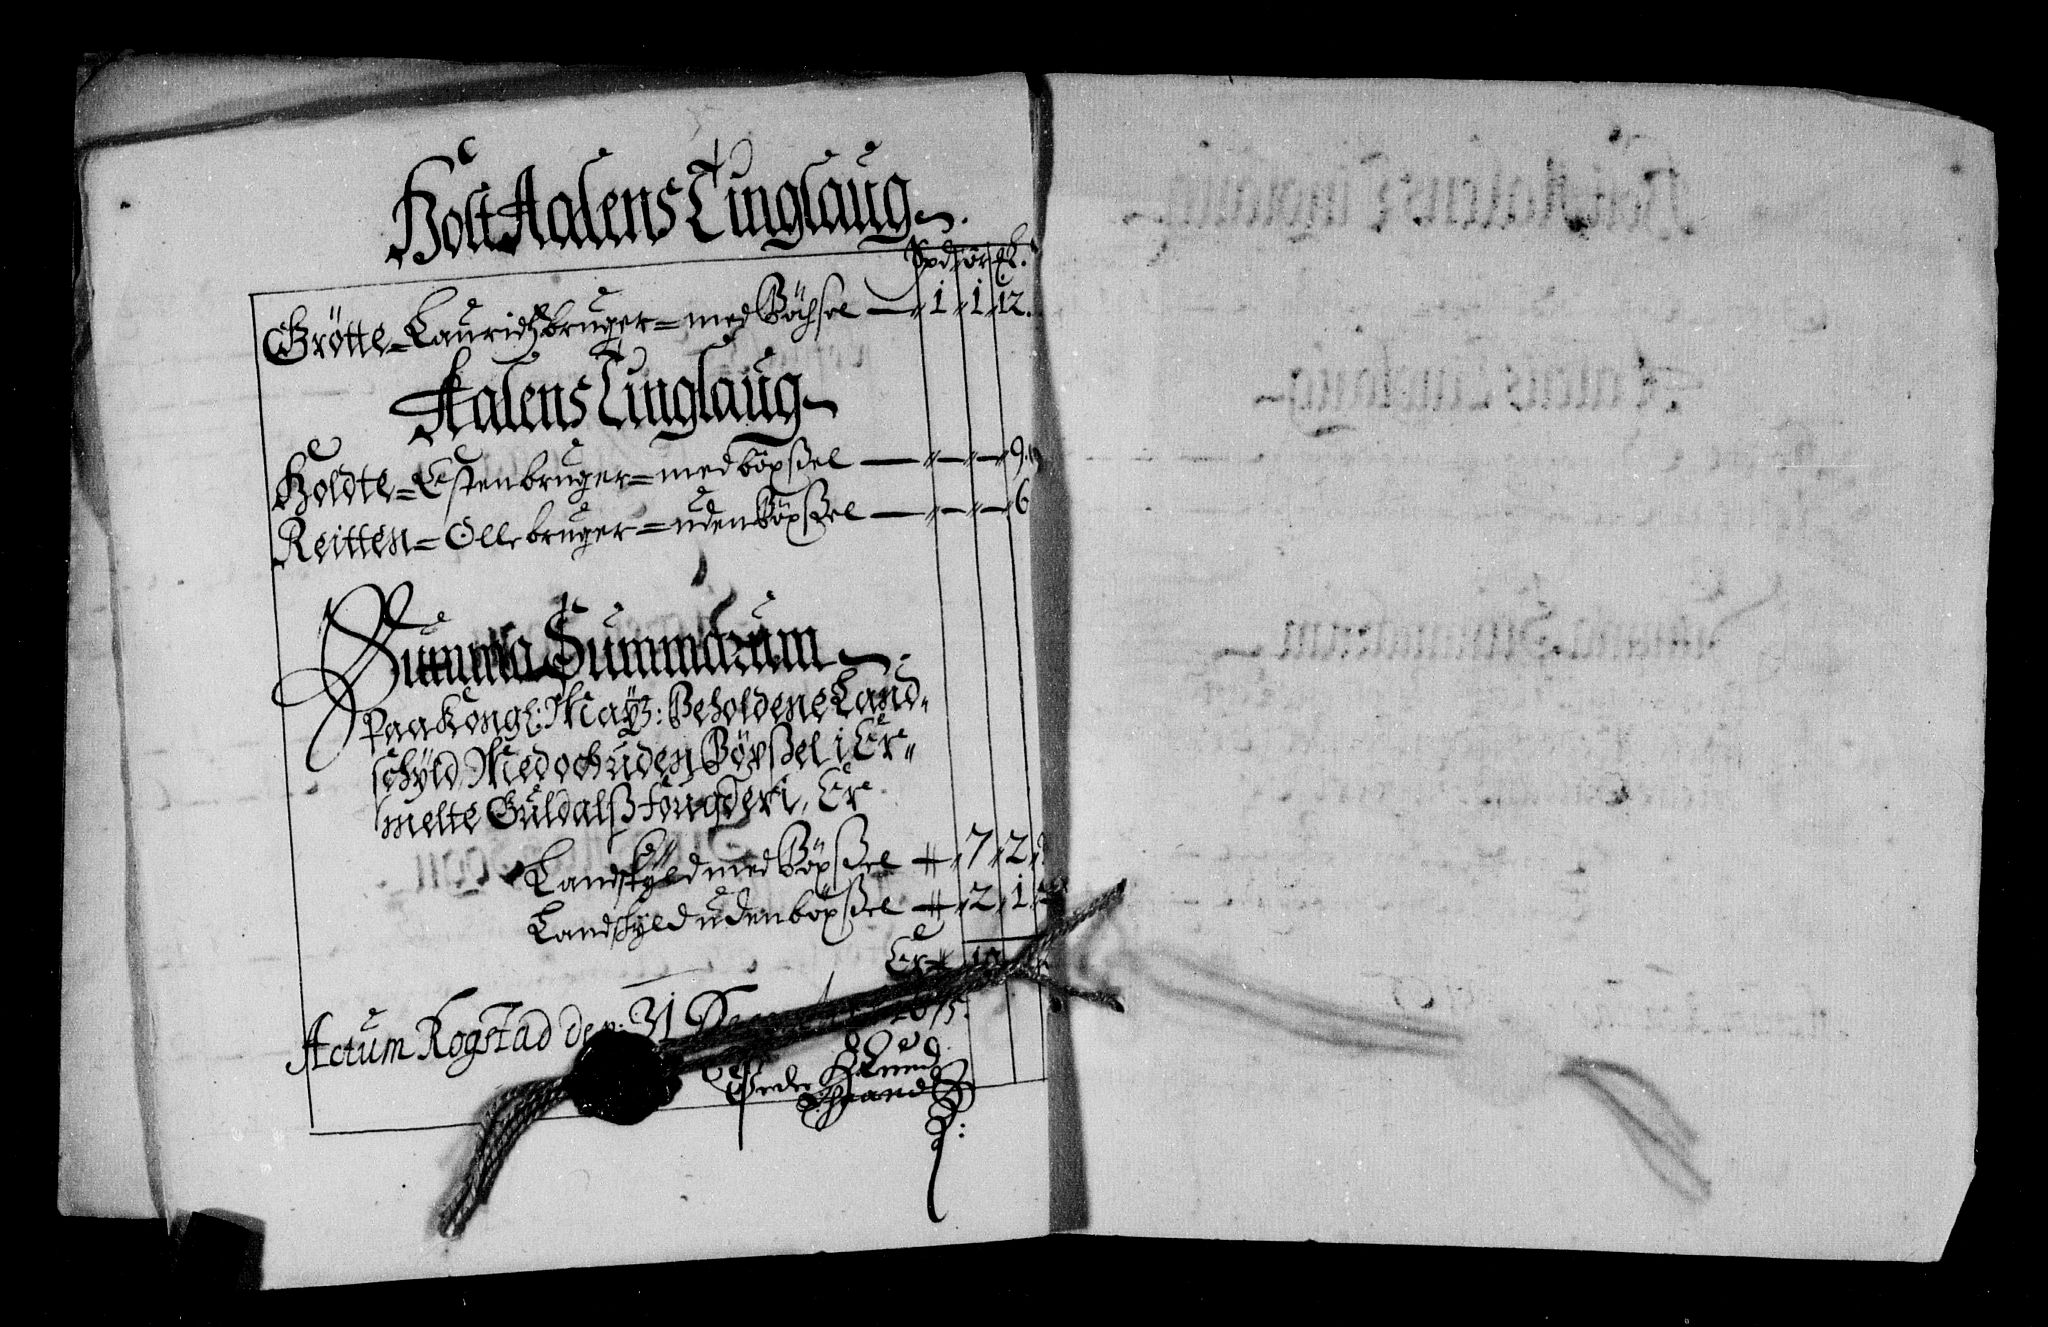 Holt Aalens Tinglaug
Spd ør ℔.
Grötte = Lauridtz bruger = med Böchsel — „ 1 „ 1 „ 12.
Aalens Tinglaug
Holdte = Esten bruger = med böxßel — „ — „ — 9.
Reitten = Olle bruger = uden Böxßel — „ — „ — „ 6
Summa Summarum
Paa Kongl: Maytz: Beholdene Land-
schyld Med och uden Böxßel i Er-
melte Guldalß fougderi, Er
Landskyld med Böxßel „ 7 „ 2 „
Landskyld uden böxßel „ 2 „ 1 „
Er 10
Actum Rogstad den: 31 Decem
Peder Lund